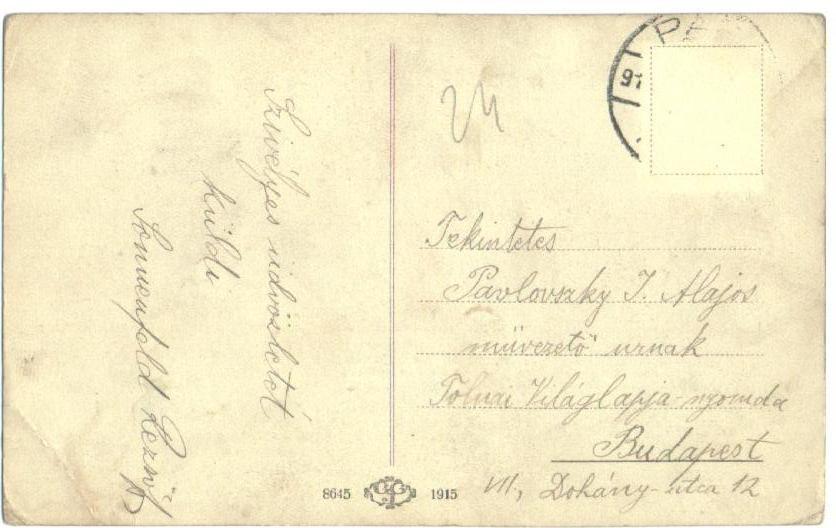 Szivélyes üdvözletét
küldi
Sonnenfeld Rezső
24
91
Tekintetes
Pavlovszky J. Alajos
művezető urnak
Tolnai Világlapja-nyomda
Budapest
VII., Dohány-utca 12
8645 1915